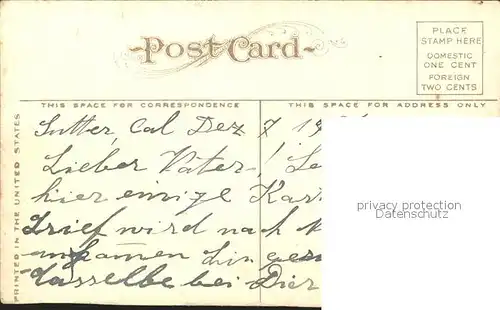 Post Card
PLACE
STAMP HERE
DOMESTIC
ONE CENT
FOREIGN
TWO CENTS
THIS SPACE FOR CORRESPONDENCE
THIS SPACE FOR ADDRESS ONLY
PRINTED IN THE UNITED STATES
Sutter, Cal Dez 7 19
Lieber Vater!
hier einige Kar
Brief wird nach
bin gesu
dasselbe bei Dier
privacy protection
Datenschutz